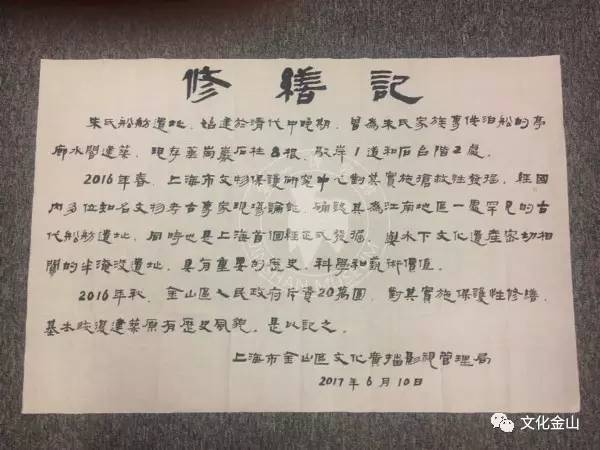 修繕記
朱氏船舫遺址，始建於清代中晚期，曾為朱氏家族專供泊船的亭
廊水閣建築，現存花崗巖石柱8根，駁岸1道和石台階2處。
2016年春，上海市文物保護研究中心對其實施搶救性發掘，經國
內多位知名文物考古專家現場論証，確認其為江南地區一處罕見的古
代船舫遺址，同時也是上海首個經正式發掘，與水下文化遺產密切相
關的半淹沒遺址，具有重要的歷史、科學和藝術價值。
2016年秋，金山區人民政府斥資20萬圓，對其實施保護性修繕，
基本恢復建築原有歷史風貌，是以記之。
上海市金山區文化廣播影視管理局
2017年6月10日
文化金山